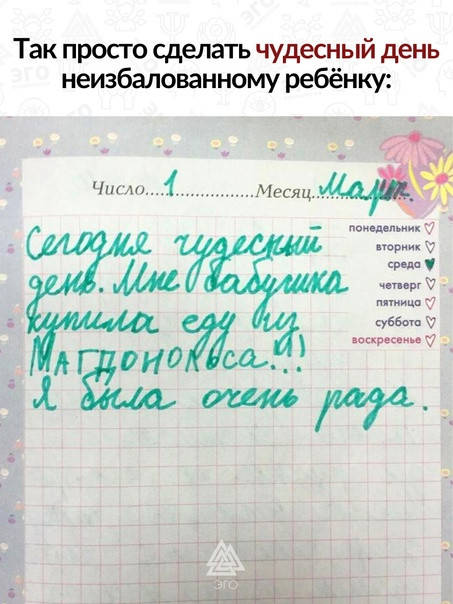 Так просто сделать чудесный день
неизбалованному ребёнку:
Число....1..................Месяц...Март...
понедельник
вторник
среда
четверг
пятница
суббота
воскресенье
Сегодня чудесный
день. Мне бабушка
купила еду из
Магдонольса..!!
Я была очень рада.
ЭГО